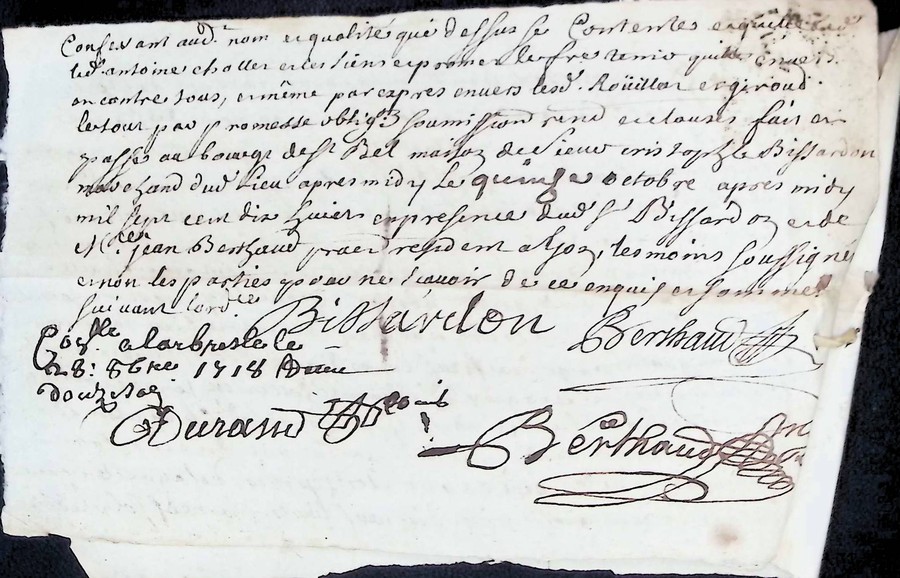 Confessant aud. nom et qualité que dessus se Contente et quitte
led. antoine chollet et les siens et promet le fre tenir quitte envers
en contre tous, et même par expres envers lesd. Roüillat et giroud.
le tout par promesse oblig. soumission rend et clauses fait et
passé au bourg de St Bel maison de sieur cristophle Bissardon
marchand dud. lieu apres midy le quinze octobre apres midy
mil sept cent dix huict en presence dud. Sr Bissardon et de
jean Berthaud praticien resident a les moins soussignés
et non les parties pour ne sçavoir de ce enquis et sommés
suivant lord.ce
Bissardon
Berthaud
Con.lle a larbresle le
28: 8bre 1718
douze sols
Durand
Berthaud